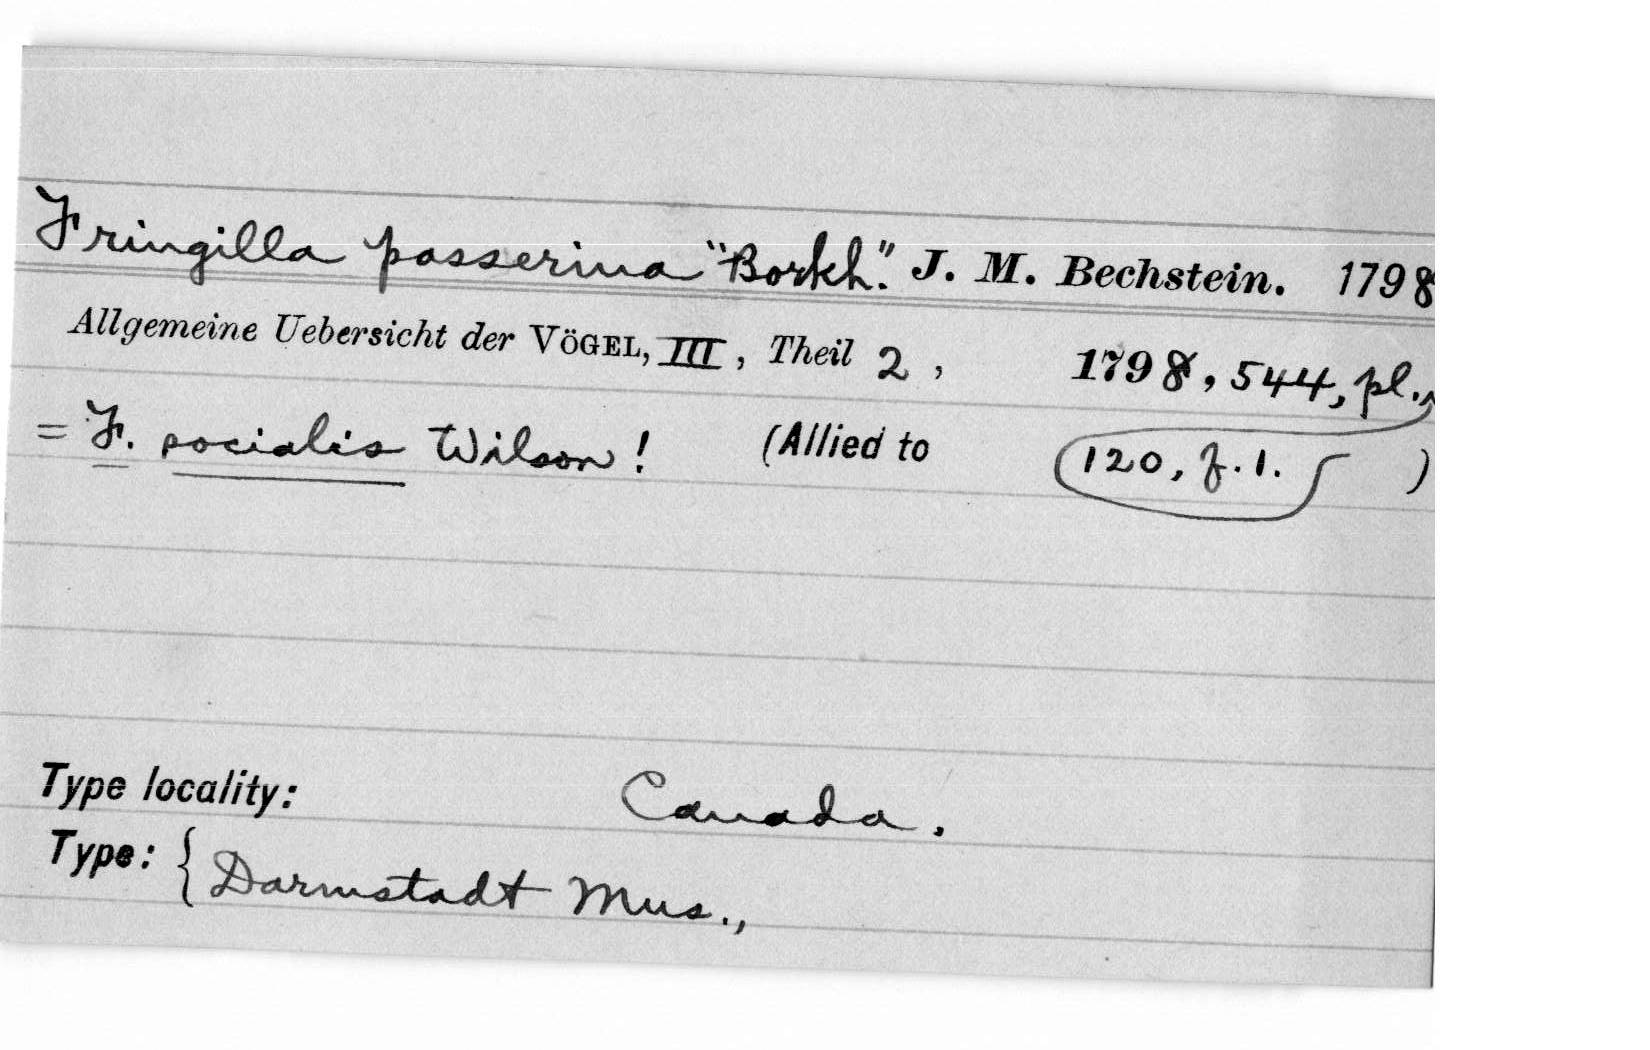 Fringilla passerina "Borkh." J. M. Bechstein. 1798
Allgemeine Uebersicht der VÖGEL, III, Theil 2, 1798, 544, pl.
= F. socialis Wilson! (Allied to 120, f. 1. )
Type locality: Canada.
Type: { Darmstadt Mus.,